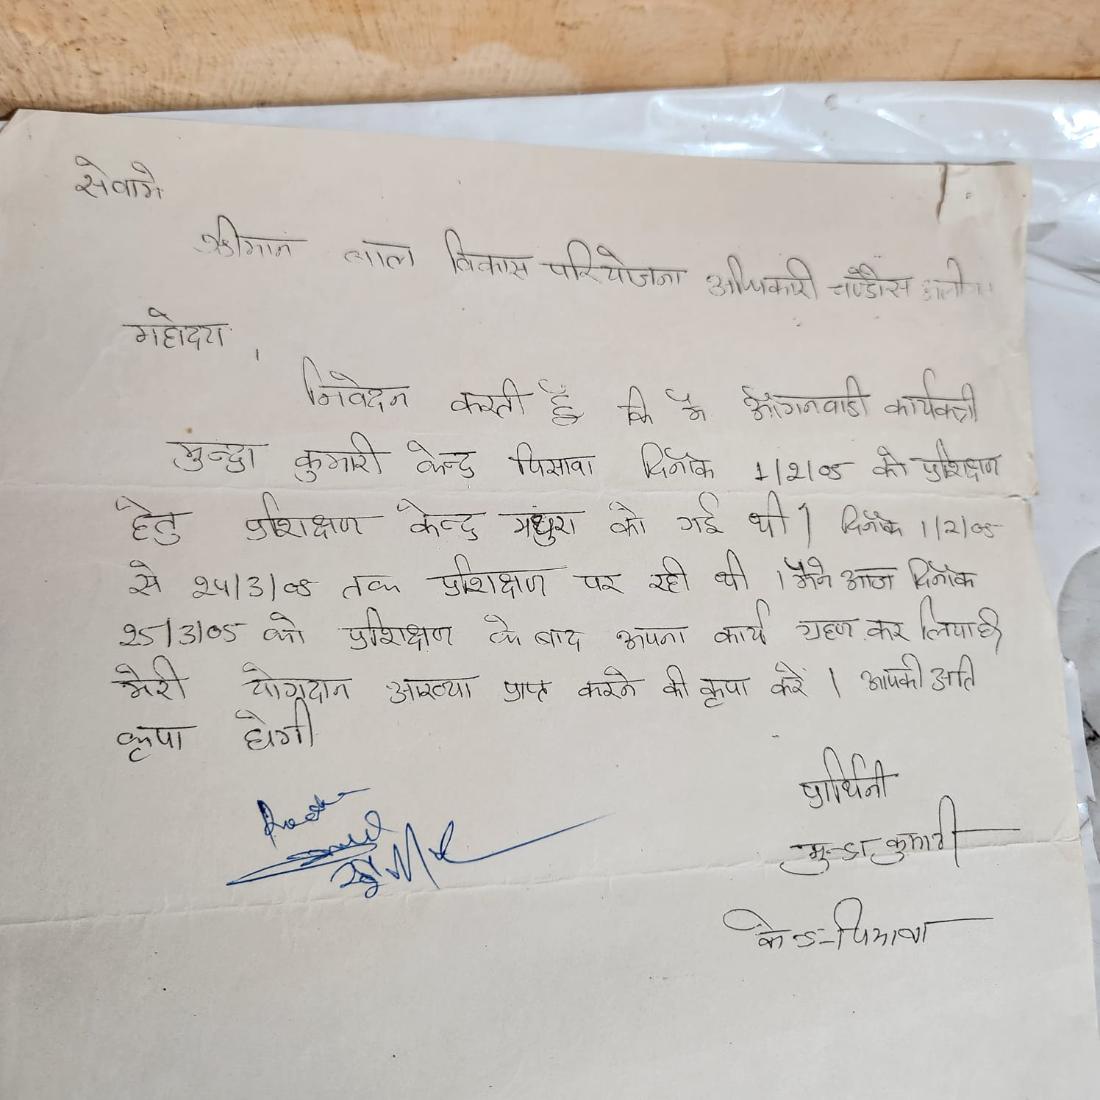 सेवामे
श्रीमान बाल विकास परियोजना अधिकारी चण्डौस
महोदय,
निवेदन करती हूँ कि मै आँगनवाडी कार्यकत्री
कुमारी केन्द्र पिसावा दिनाँक 1/2/05 को प्रशिक्षण
हेतु प्रशिक्षण केन्द्र मथुरा को गई थी। दिनाँक 1/2/05
से 24/3/05 तक प्रशिक्षण पर रही थी। मैने आज दिनाँक
25/3/05 को प्रशिक्षण के बाद अपना कार्य ग्रहण कर लिया है,
मेरी योगदान आख्या प्राप्त करने की कृपा करें। आपकी अति
कृपा होगी
प्रार्थिनी
कुमारी
केन्द्र-पिसावा